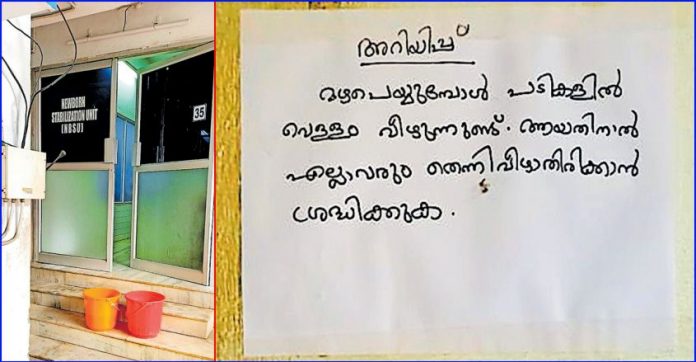 NEWBORN
STABILIZATION UNIT
[NBSU]
35
അറിയിപ്പ്
മഴപെയ്യുമ്പോൾ പടികളിൽ
വെള്ളം വീഴുന്നുണ്ട്. ആയതിനാൽ
എല്ലാവരും തെന്നിവീഴാതിരിക്കാൻ
ശ്രദ്ധിക്കുക.